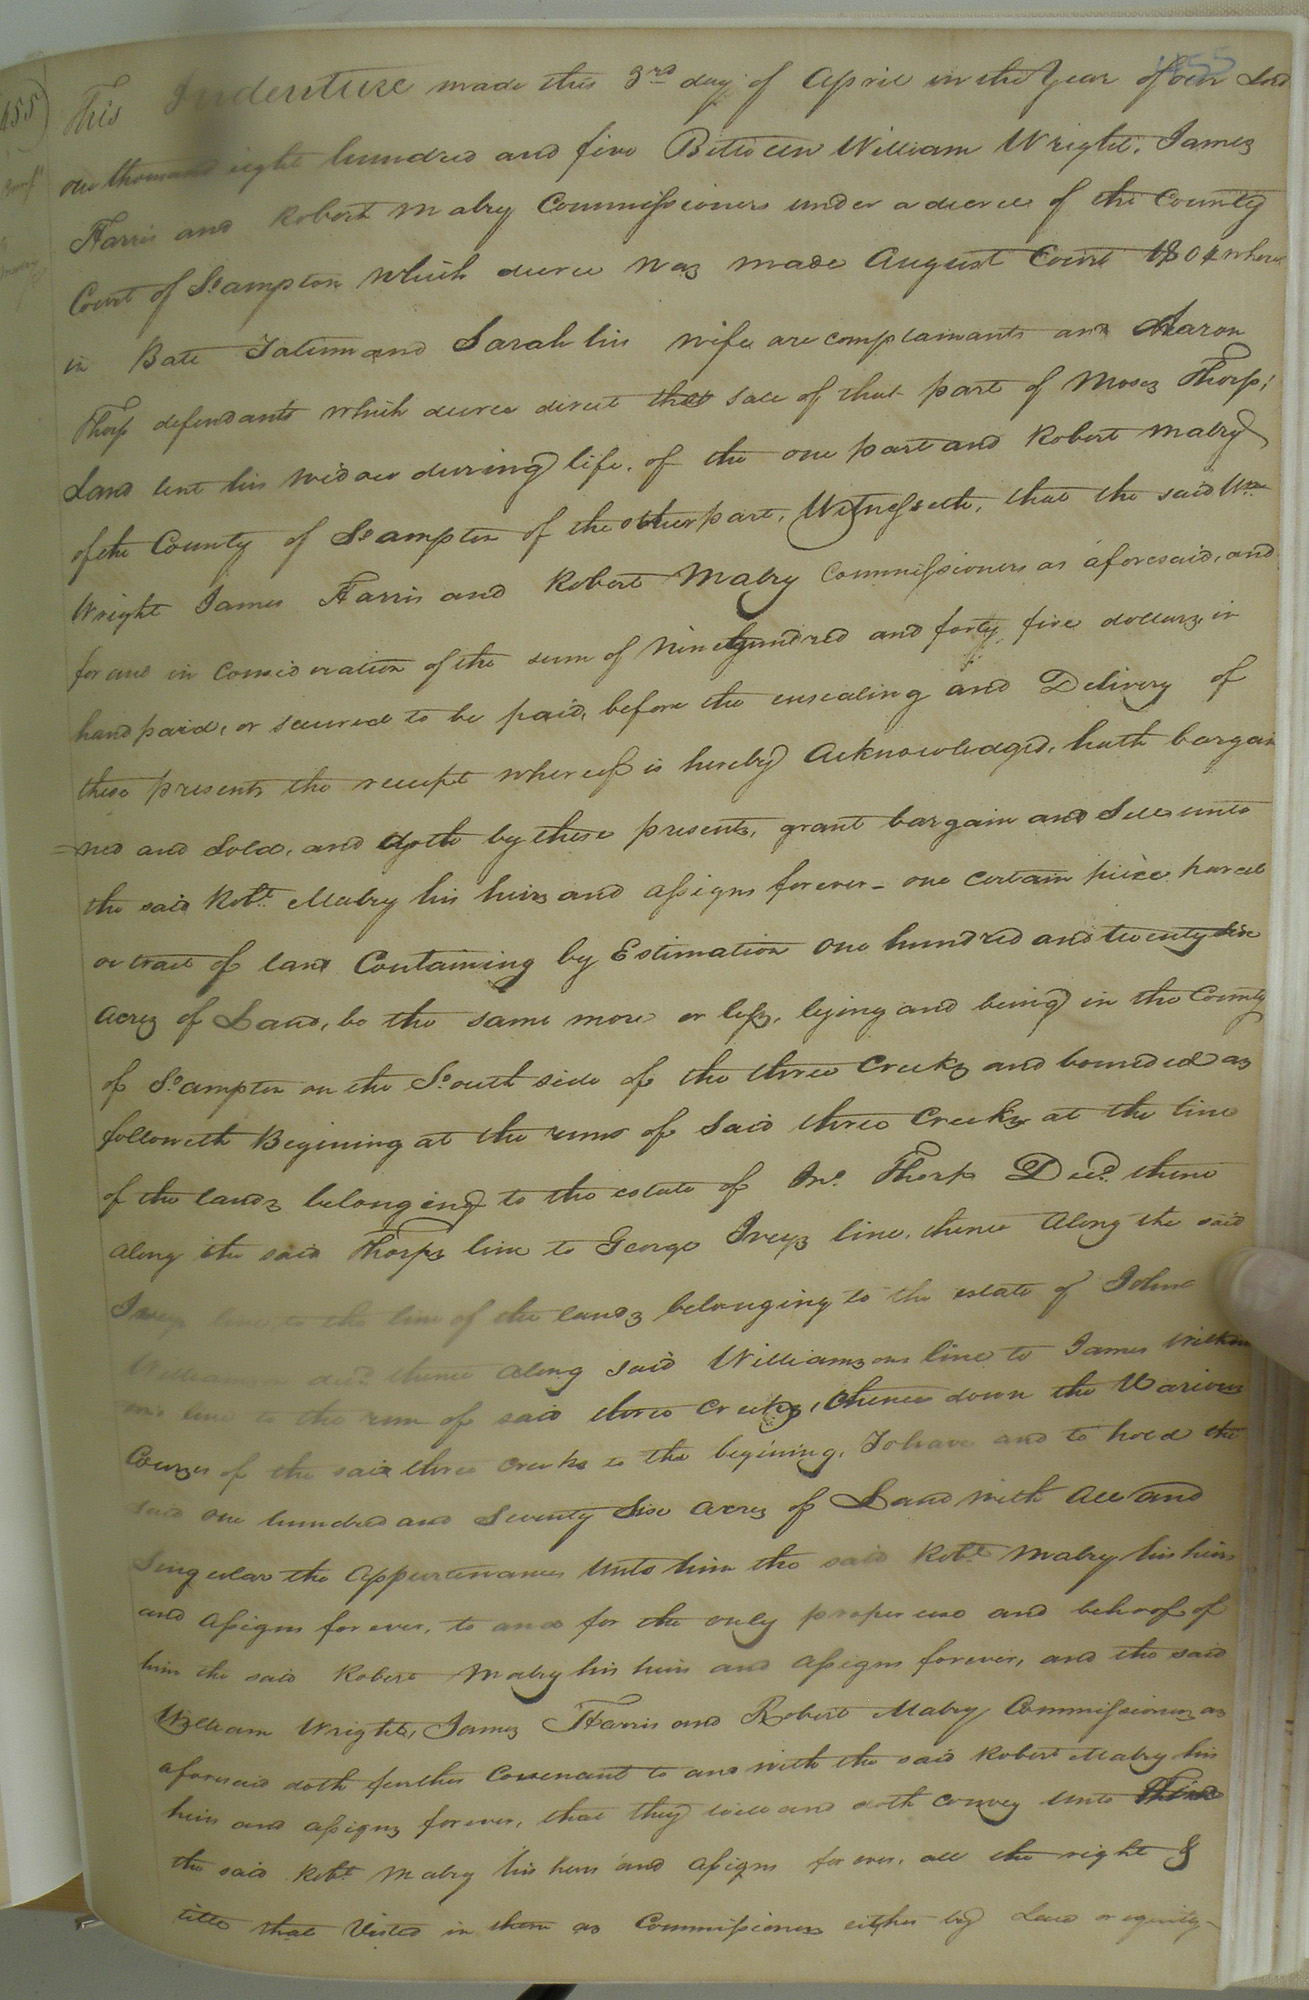 455
This Indenture made this 3rd day of April in the Year of our Lord
one thousand eight hundred and five Between William Wright, James
Harris and Robert Mabry Commissioners under a decree of the County
Court of So.ampton which decree was made August Court 1804 where
in Bate Tatum and Sarah his wife are complainants and Aaron
Thorp defendants which decree direct the sale of that part of Moses Thorp,
Land lent his widow during life. of the one part and Robert Mabry
of the County of So.ampton of the other part, Witnesseth, that the said Wm.
Wright James Harris and Robert Mabry Commissioners as aforesaid, and
for and in Consideration of the sum of Nine hundred and forty five dollars, in
hand paid, or secured to be paid, before the ensealing and Delivery of
these presents the receipt whereof is hereby Acknowledged, hath bargain
=ned and Sold, and doth by these presents, grant bargain and Sell unto
the said Robt. Mabry his heirs and assigns forever - one certain piece parcel
or tract of land Containing by Estimation One hundred and twenty six
Acres of Land, be the same more or less, lying and being in the County
of So.ampton on the South side of the three Creeks and bounded as
followeth Begining at the run of said three Creeks at the line
of the lands belonging to the estate of Thorp Decd. thence
along the said Thorps line to George Iveys line, thence Along the said
Iveys line, to the line of the lands belonging to the estate of John
Williamson decd. thence along said Williamsons line to James
line to the run of said three Creeks, thence down the Various
Courses of the said three Creeks to the begining. To have and to hold the
said one hundred and Seventy Six acres of Land with all and
Singular the Appurtenances Unto him the said Robt. Mabry his heirs
and assigns forever, to and for the only proper use and behoof of
him the said Robert Mabry his heirs and assigns forever, and the said
William Wright, James Harris and Robert Mabry Commissioners as
aforesaid doth further Covenant to and with the said Robert Mabry his
heirs and assigns forever, that they will and doth convey unto
the said Robt. Mabry his heirs and assigns forever, all the right &
title that Vested in them as Commissioners either by Law or equity-